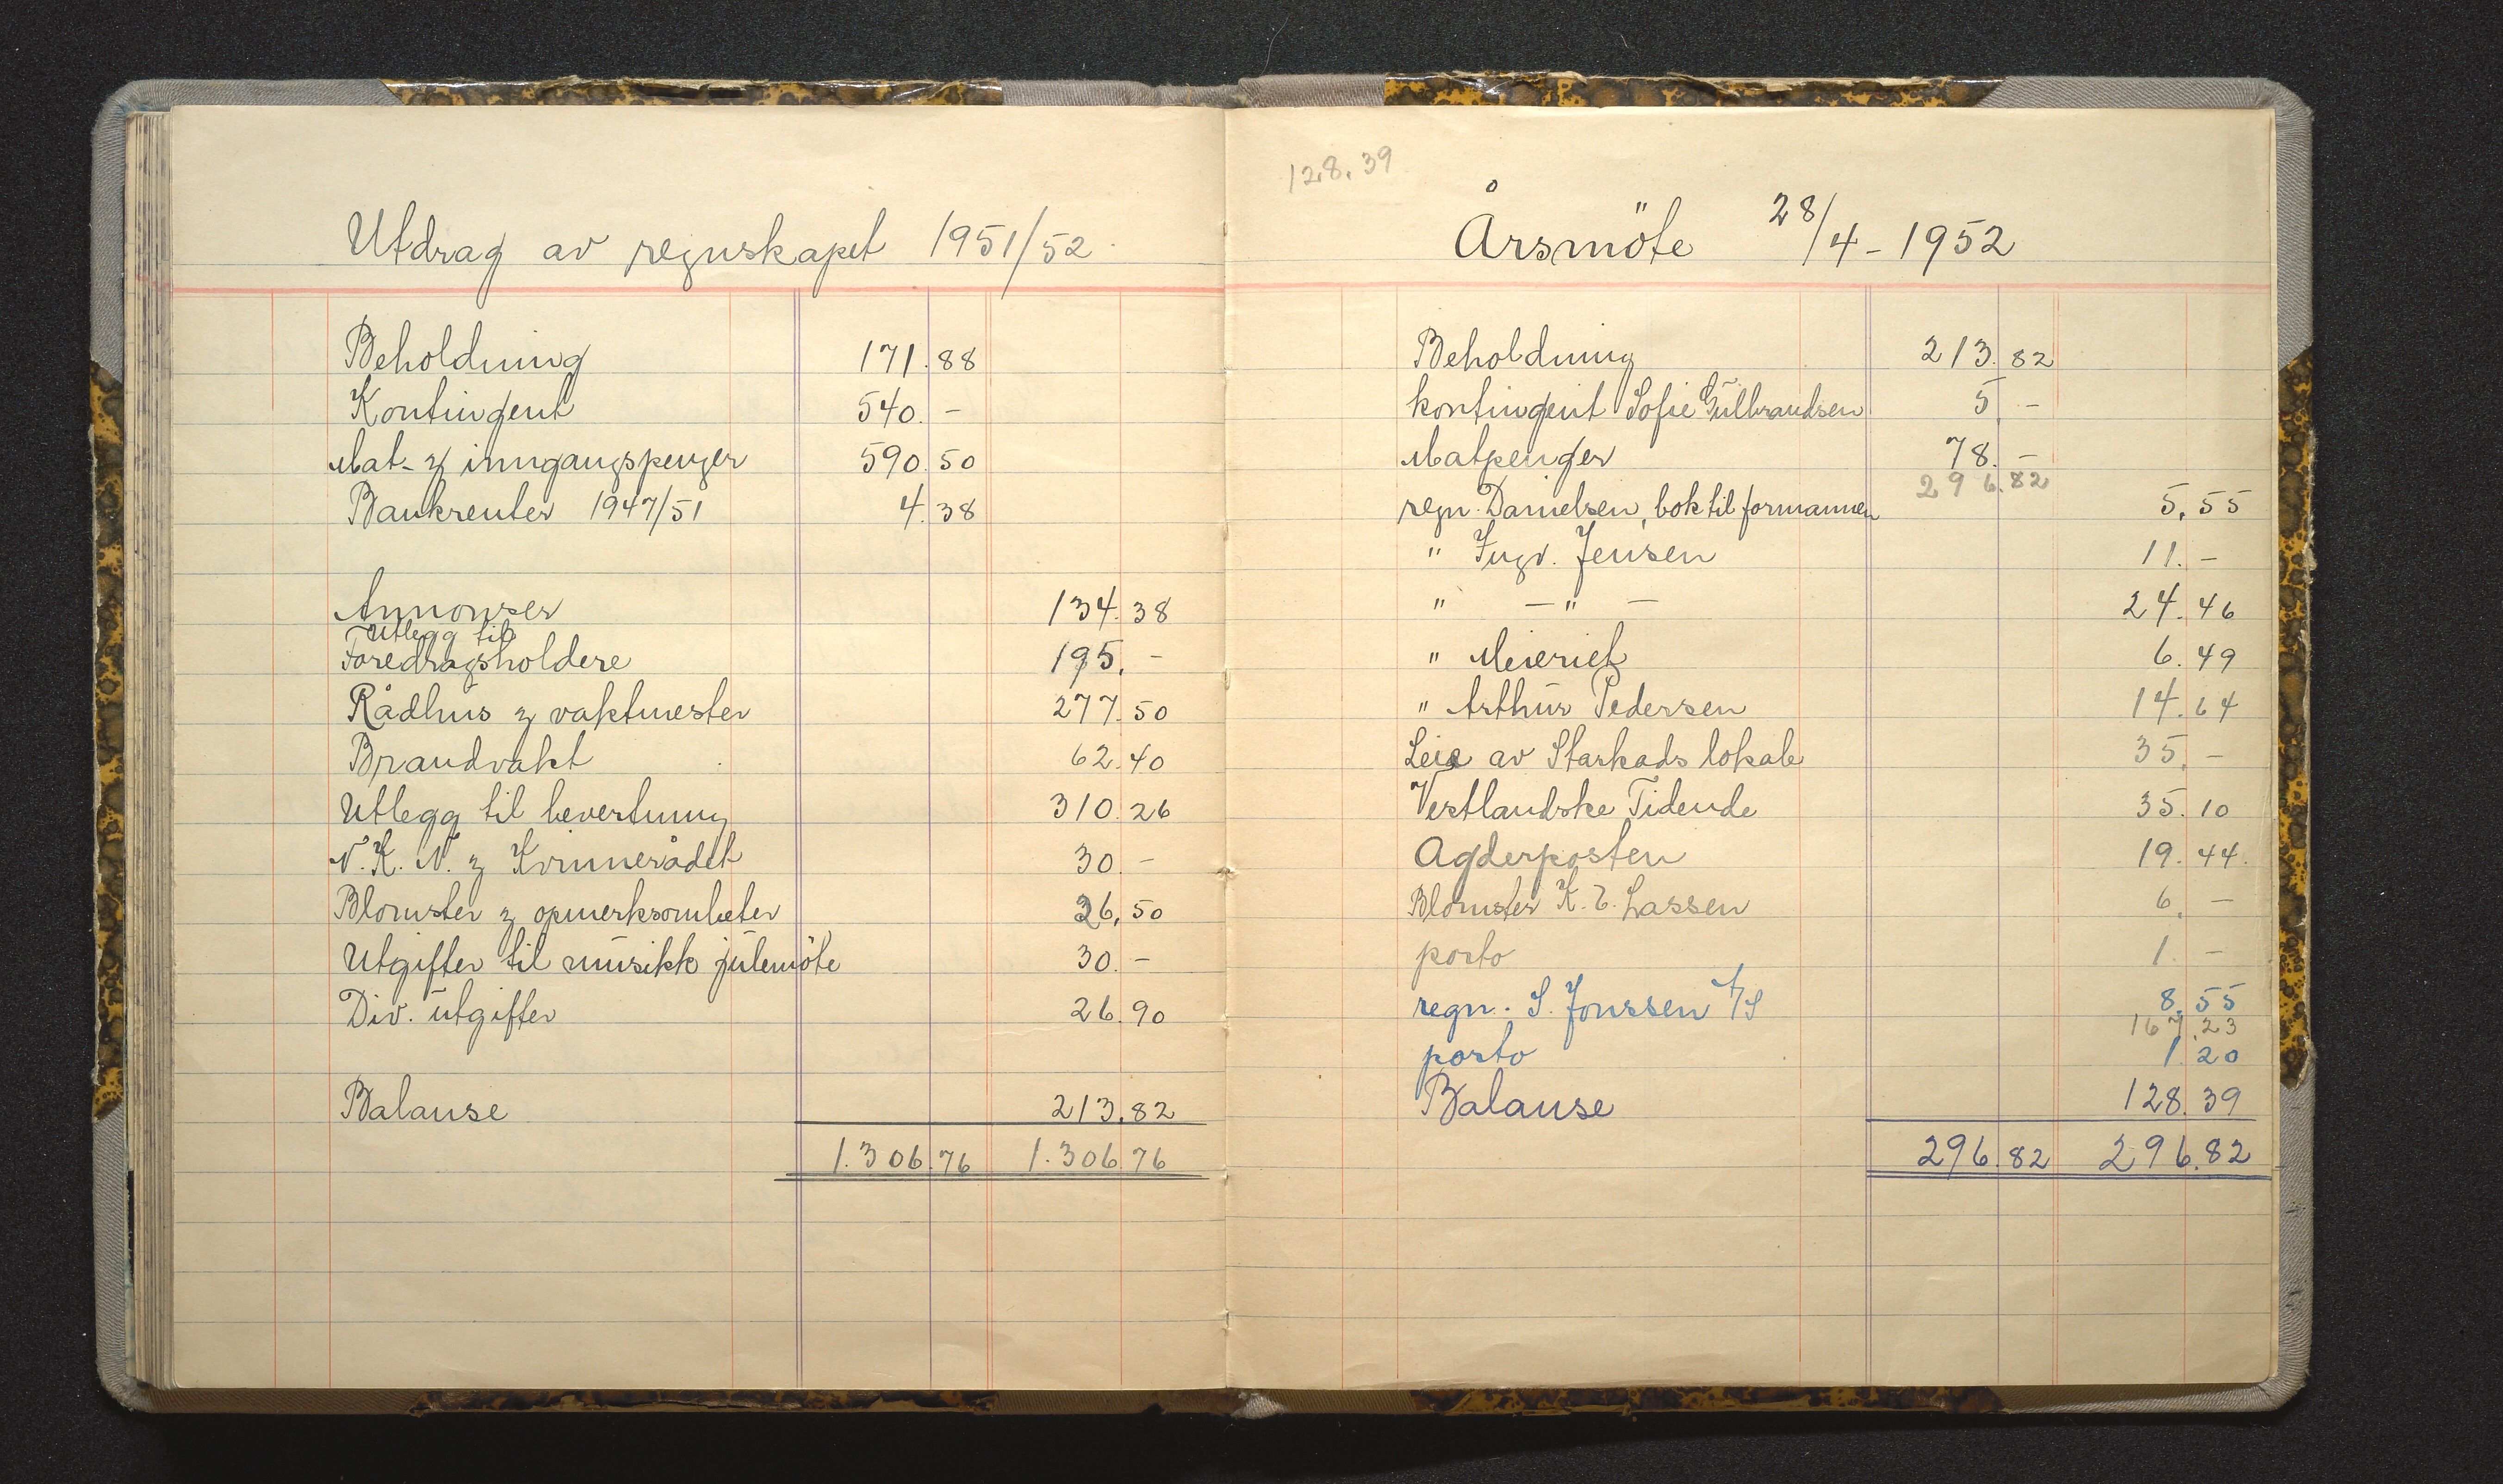 Utdrag av regnskapet 1951/52.
Beholdning 171.88
Kontingent 540.-
Mat- & inngangspenger 590.50
Bankrenter 1947/51 4.38
Annonser 134.38
Utlegg til
Foredragsholdere 195.-
Rådhus & vaktmester 277.50
Brandvakt 62.40
Utlegg til bevertning 310.26
N.K.N. & Kvinnerådet 30.-
Blomster & opmerksomheter 26,50
Utgifter til musikk julemöte 30.-
Div. utgifter 26.90
Balanse 213,82
1.306.76 1.306.76
128.39
Årsmöte 28/4-1952
Beholdning 213.82
kontingent Sofie Gulbrandsen 5.-
Matpenger 78.-
296.82
regn. Danielsen, bok til formannen 5.55
" Ingv. Jensen 11.-
" -"- 24.46
" Meieriet 6.49
" Arthur Pedersen 14.64
Leie av Starkads lokale 35.-
Vestlandske Tidende 35.10
Agderposten 19.44.
Blomster K. E. Lassen 6.-
porto 1.-
regn. S. Jonssen A/S 8.55
167.23
porto 1.20
Balanse 128.39
296.82 296.82